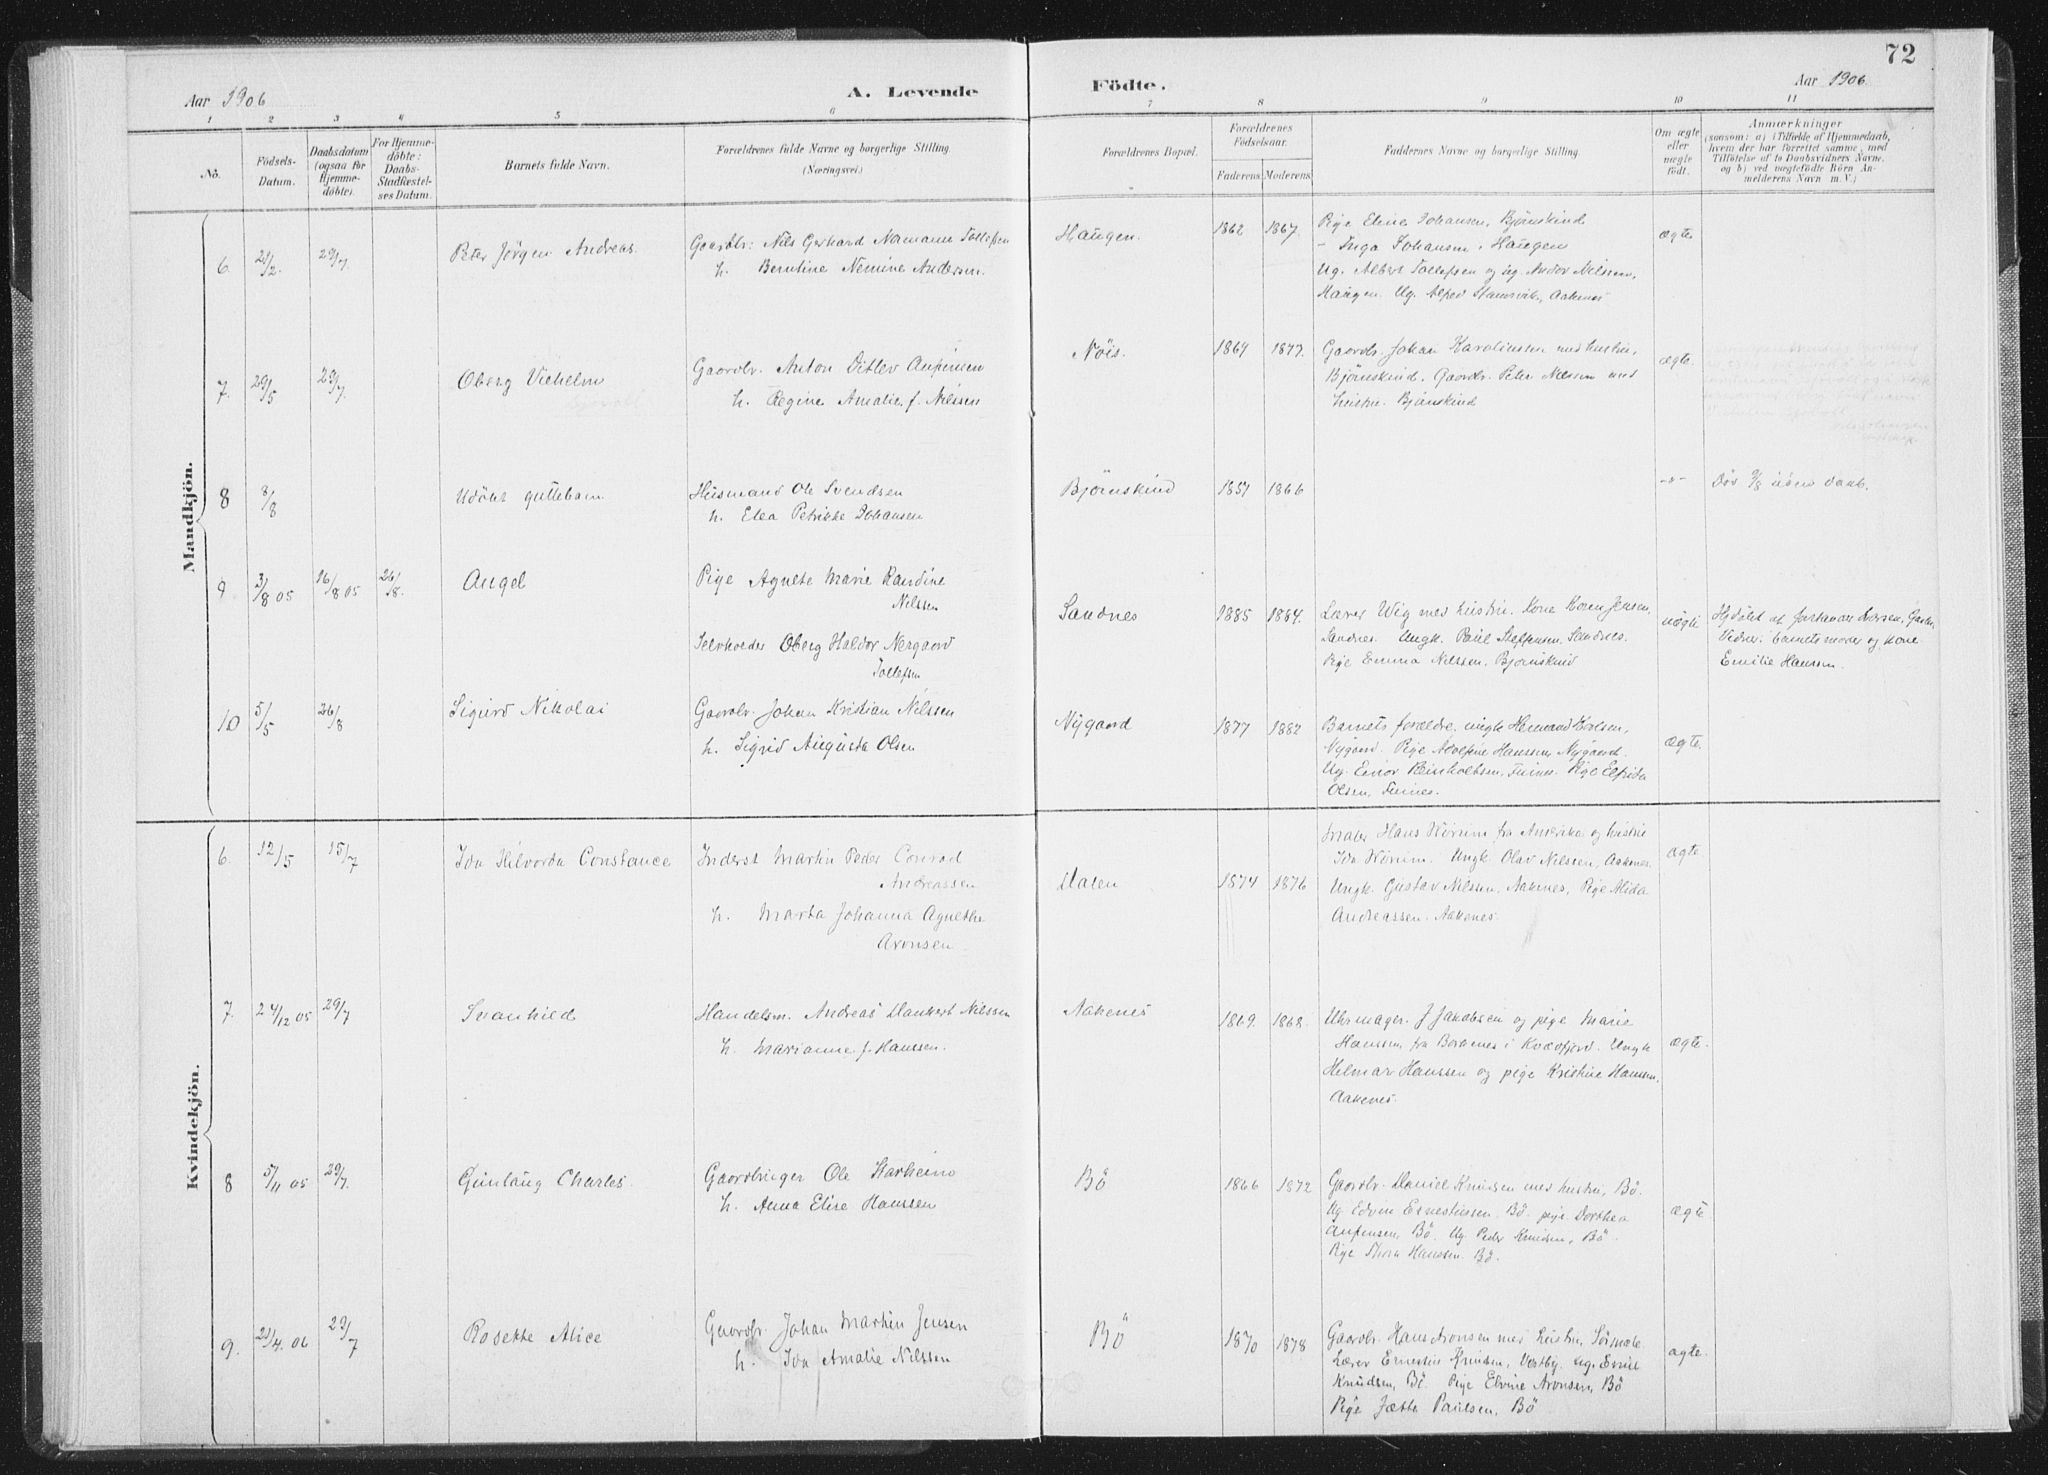 72
Aar 1906
A. Levende
Födte.
Aar 1906.
1 2 3 4 5 6 7 8 9 10 11
No.
Födsels-
Datum.
Daabsdatum
(ogsaa for
Hjemme-
döbte).
For Hjemme-
döbte:
Daabs-
Stadfæstel-
ses Datum.
Barnets fulde Navn.
Forældrenes fulde Navne og borgerlige Stilling
(Næringsvei).
Forældrenes Bopæl.
Forældrenes
Födselsaar.
Faderens
Moderens
Faddernes Navne og borgerlige Stilling.
Om ægte
eller
uægte
födt.
Anmærkninger
(saasom: a) i Tilfælde af Hjemmedaab,
hvem der har forrettet samme, med
Tilföielse af to Daabsvidners Navne,
og b) ved uægtefödte Börn An-
melderens Navn m. V.)
Mandkjön.
6. 21/2. 29/7 Peter Jörgen Andreas.
Gaardbr: Nils Gerhard Normann Tollefsen
h. Berntine Nemine Andersen.
Haugen. 1862 1867.
Pige Eline Johansen, Bjönskind
- Inga Johansen, Haugen
Ug. Albert Tollefsen og ug. Andor Nilssen,
Haugen. Ug. Alfed Stamsvik, Aakenes
ægte
7. 29/5 29/7. Oberg Vilhelm
Gaardbr. Anton Ditlev Anfinsen
h. Regine Amalie f. Nilssen
Nöis. 1864 1877.
Gaardbr. Johan Karolinsten med hustru,
Bjönskind. Gaardbr. Peter Nilssen med
hustru. Bjönskind
ægte.
8 8/8 Udöbt guttebarn
Husmand Ole Svendsen
h. Elea Petrikke Johansen
Bjönskind 1857 1866
-"- Död 9/8 uden daab.
9. 3/8 05 16/8 05 26/8. Angel
Pige Agnete Marie Randine
Nilssen
Selvholder Oberg Haldor Nergaard
Tollefsen
Sandnes 1885 1884.
Lærer Wig med hustru. Kone Karen Jensen,
Sandnes. Ungk. Paul Steffensen, Sandnes.
Pige Emma Nilssen, Bjönskind
uægte
Hjdöbt af
Vidner: barnets moder og kone
Emilie Hanssen.
10 5/5 26/8 Sigurd Nikolai
Gaardbr. Johan Kristian Nilssen
h. Sigrid Augusta Olsen
Nygaard 1877 1882
Barnets forældre, ungk Hermand Karlsen,
Nygaard. Pige Adolfine Hanssen, Nygaard.
Ug. Einar Reinholdtsen, Finnes. Pige Elfrida
Olsen, Finnes.
ægte.
Kvindekjön.
6. 12/5 15/7 Ida Hilvarda Constance
Inderst Martin Peder Conrad
Andreassen
h. Marta Johanna Agnethe
Aronsen
Dalen 1874 1876
Maler Hans Wörum fra Amerika og hustru
Ida Wörum. Ungk. Olav Nilssen, Aakenes.
Ungk. Gustav Nilssen, Aakenes, Pige Alida
Andreassen. Aakenes.
ægte
7. 24/12 05 29/7 Svanhild
Handelsm. Andreas Dankert Nilssen
h. Marianne f. Hanssen.
Aakenes 1869. 1868.
Uhrmager. J Jakobsen og pige Marie
Hanssen fra Borkenes i Kvædfjord. Ungk
Hilmar Hanssen og pige Kristine Hanssen,
Aakenes.
ægte.
8 5/11 05 29/7. Gunlaug Charles.
Gaardbruger Ole Starheim
h. Anna Elise Hanssen
Bö 1866 1872
Gaardbr. Daniel Knudsen med hustru, Bö.
Ug. Edvin Ernestussen. Bö. pige Dorthea
Anfinsen, Bö. Ug. Peder Knudsen, Bö.
Pige Thora Hanssen. Bö.
ægte.
9. 21/4. 06 29/7 Rosette Alice
Gaardbr. Johan Martin Jensen
h. Ida Amalie Nilssen
Bö 1870 1878
Gaardbr. Hans Aronsen med hustru,
Lærer Ernestus Knudsen, Vestby. ug.
Knudsen, Bö. Pige Elvine Aronsen, Bö
Pige Jætta Paulsen, Bö
ægte.